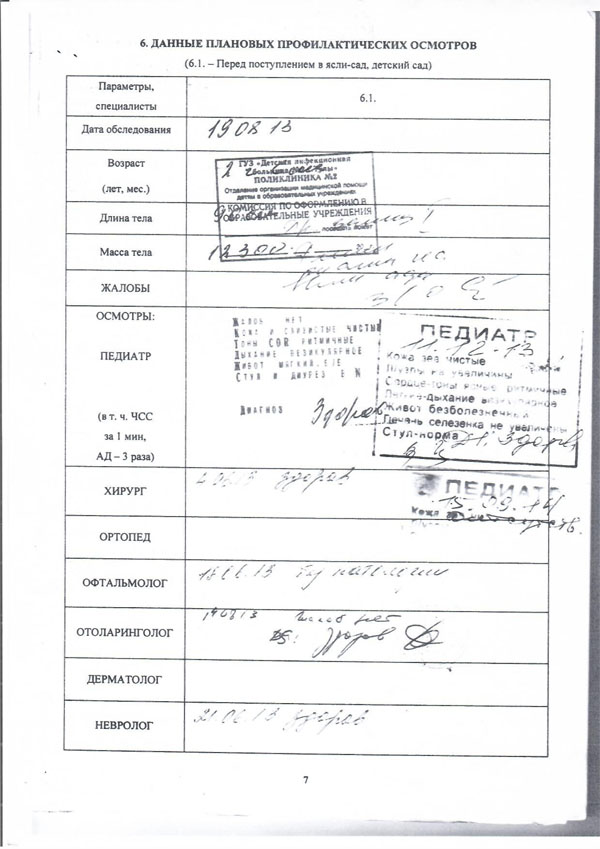 6. ДАННЫЕ ПЛАНОВЫХ ПРОФИЛАКТИЧЕСКИХ ОСМОТРОВ
(6.1. – Перед поступлением в ясли-сад, детский сад)
Параметры,
специалисты
6.1.
Дата обследования
19 08 13
Возраст
(лет, мес.)
2
ГУЗ «Детская инфекционная
ПОЛИКЛИНИКА №2
Отделение организации медицинской помощи
детям в образовательных учреждениях
КОМИССИЯ ПО ОФОРМЛЕНИЮ В
ОБРАЗОВАТЕЛЬНЫЕ УЧРЕЖДЕНИЯ
Длина тела
Масса тела
12300
ЖАЛОБЫ
ОСМОТРЫ:
ПЕДИАТР
(в т. ч. ЧСС
за 1 мин,
АД – 3 раза)
Жалоб нет
Кожа и слизистые чистые
Тоны COR ритмичные
Дыхание везикулярное
Живот мягкий, б/б
Стул и диурез в N
Диагноз Здоров
ПЕДИАТР
11.12-13
Кожа зев чистые
увеличены
Сердце-тоны ясные, ритмичные
Легкие-дыхание везикулярное
Живот безболезненный
Печень селезенка не увеличены
Стул-норма Здоров
ПЕДИАТР
15.09.14
Кожа
ХИРУРГ
здоров
ОРТОПЕД
ОФТАЛЬМОЛОГ
патологии
ОТОЛАРИНГОЛОГ
190813 жалоб нет
DS: здоров
ДЕРМАТОЛОГ
НЕВРОЛОГ
21.06.13 здоров
7